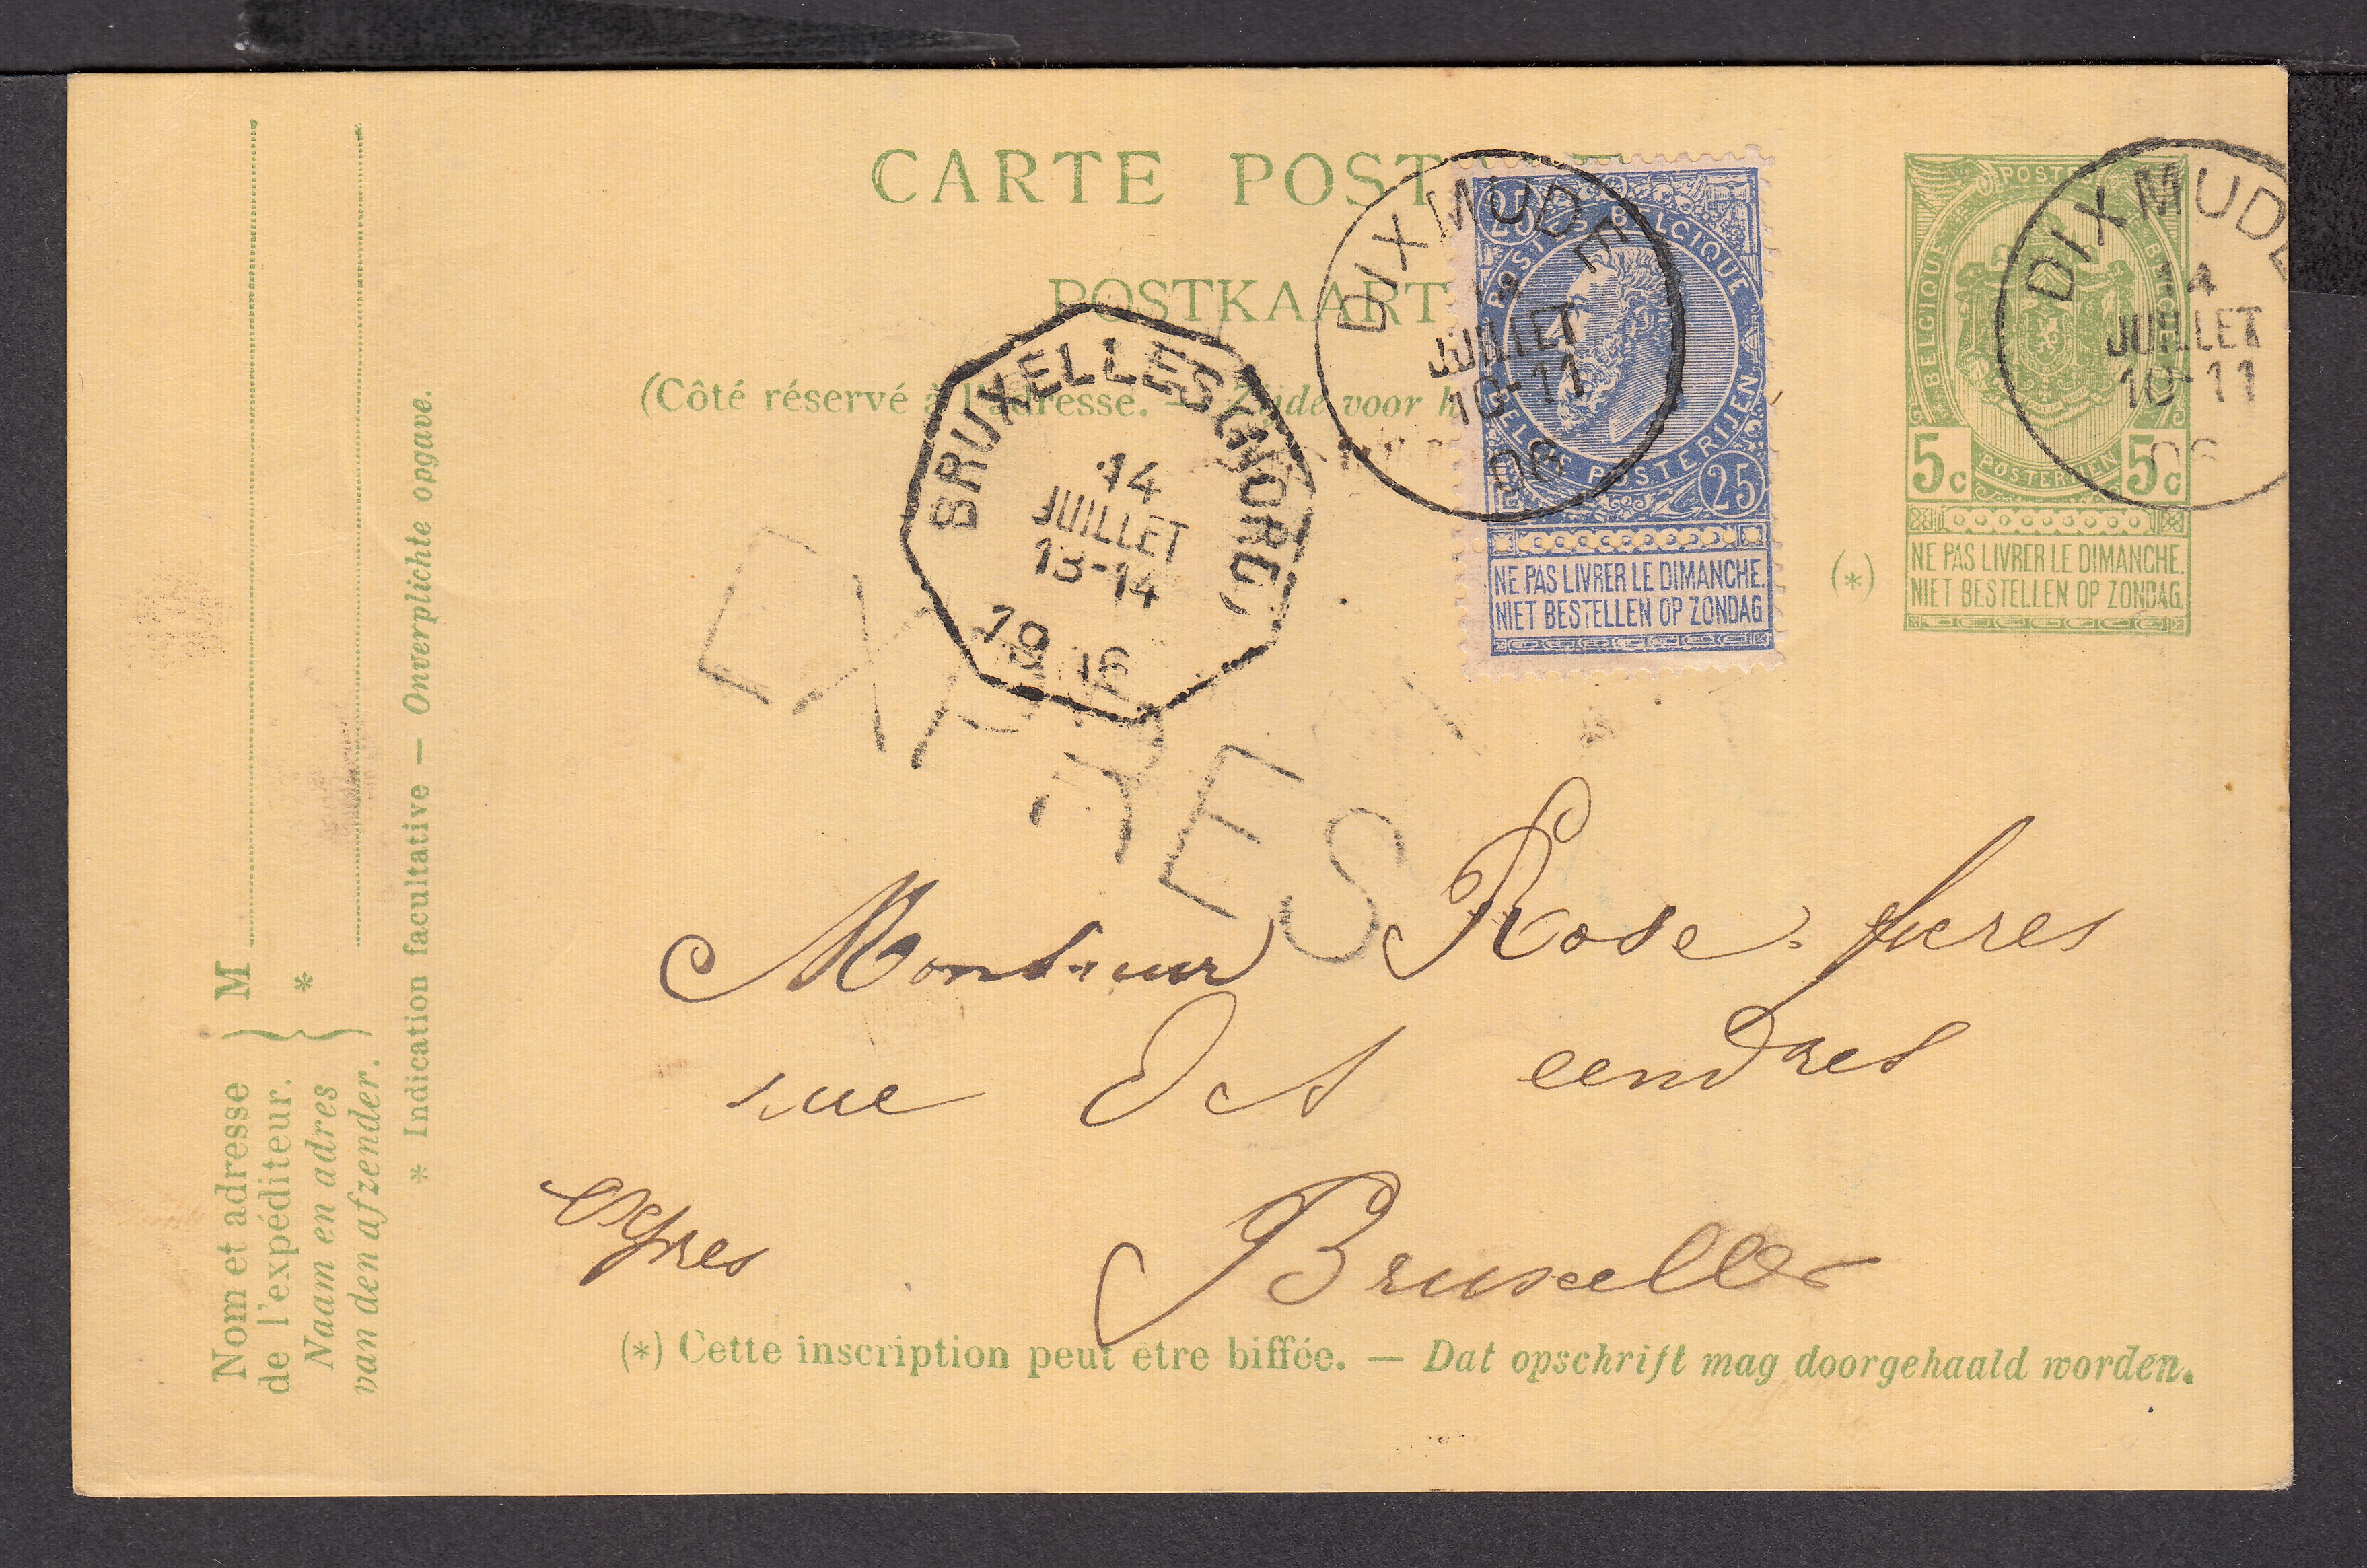 CARTE POST
POSTKAART
(Côté réservé à l'adresse. — Zijde voor h
DIXMUDE
14
JUILLET
10-11
06
25
POSTES BELGIQUE
BELGIE POSTERIJEN
25
NE PAS LIVRER LE DIMANCHE.
NIET BESTELLEN OP ZONDAG
DIXMUDE
14
JUILLET
10-11
06
POSTES
BELGIQUE
BELGIE
POSTERIJEN
5c 5c
(*)
NE PAS LIVRER LE DIMANCHE.
NIET BESTELLEN OP ZONDAG
BRUXELLES (NORD)
14
JUILLET
13-14
19 6
EXPRES
Monsieur Rose freres
rue des cendres
expres
Bruxelles
(*) Cette inscription peut être biffée. — Dat opschrift mag doorgehaald worden.
Nom et adresse
de l'expéditeur.
Naam en adres
van den afzender.
M
*
* Indication facultative — Onverplichte opgave.